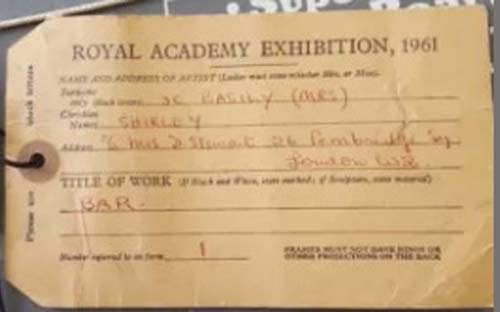 ROYAL ACADEMY EXHIBITION, 1961
NAME AND ADDRESS OF ARTIST (Ladies must state whether Mrs. or Miss).
Surname
only (block letters) DE BASILY (MRS)
Christian
Names SHIRLEY
Address c/o Mrs D Stewart 26 Pembridge Sq
London W2.
TITLE OF WORK (If Black and White, state method; if Sculpture, state material)
BAR.
Number referred to on form 1
FRAMES MUST NOT HAVE RINGS OR
OTHER PROJECTIONS ON THE BACK
Please use
block letters